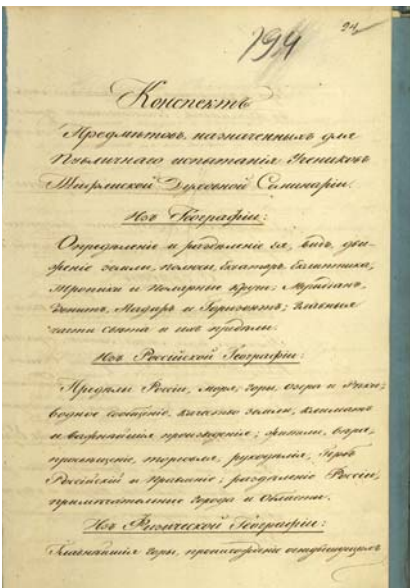 194
94
Конспектъ
Предметовъ, назначенныхъ для
Публичнаго испытанія Учениковъ
Тифлиской Духовной Семинаріи.
Изъ Географіи:
Опредѣленіе и раздѣленіе ея, видъ, дви-
женіе земли, полюсы, Екваторъ, Еклиптика,
Тропики и Полярные круги; Мередіанъ,
Зенитъ, Надиръ и Горизонтъ; главныя
части свѣта и ихъ предѣлы.
Изъ Россійской Географіи:
Предѣлы Россіи, моря, горы, озера и рѣки;
водное сообщеніе, качество земли, климатъ
и важнѣйшія произведенія; жители, вѣра,
просвѣщеніе, торговля, рукодѣлія, Гербъ
Россійскій и правленіе; раздѣленіе Россіи,
примѣчательные города и Области.
Изъ Физической Географіи:
Главнѣйшія горы, происхожденіе